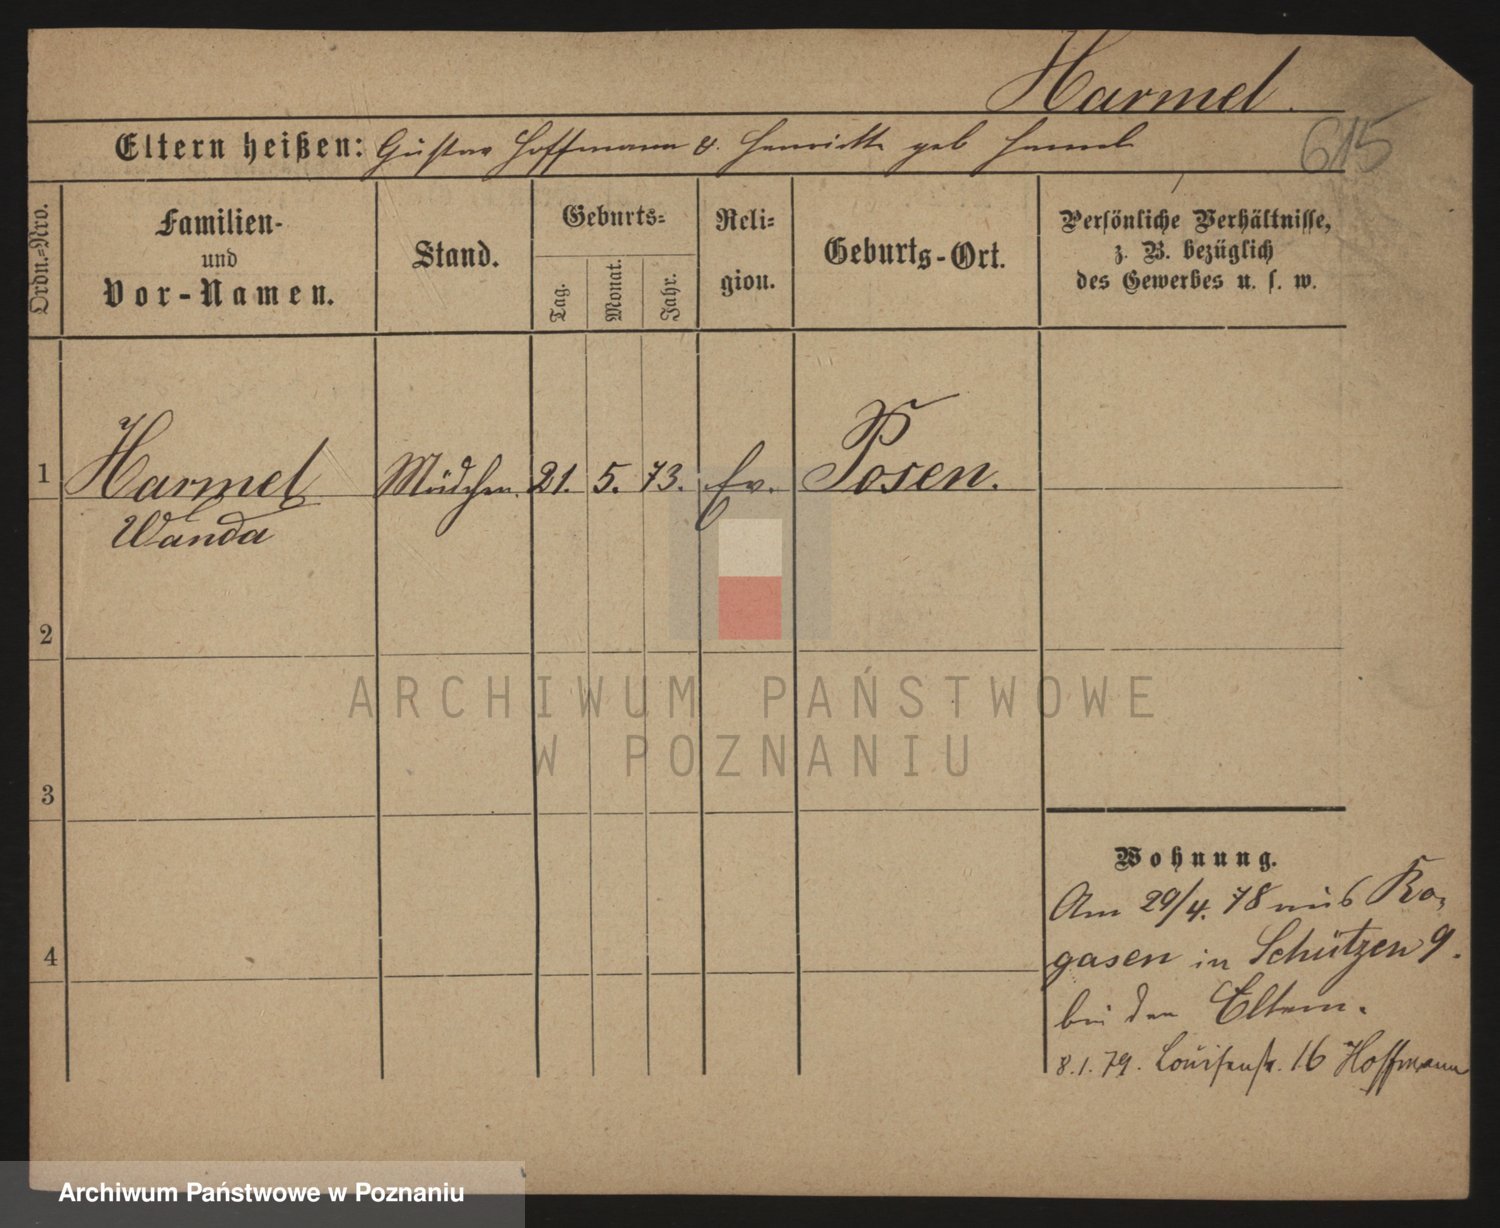 Harmel.
615
Eltern heißen: Gustav Hoffmann & Henriette geb Harmel
Ordn.-Nro.
Familien-
und
Vor-Namen.
Stand.
Geburts-
Tag.
Monat.
Jahr.
Reli-
gion.
Geburts-Ort.
Persönliche Verhältnisse,
z. B. bezüglich
des Gewerbes u. s. w.
1 Harmel Mädchen. 21. 5. 73. Ev. Posen.
Wanda
2
3
4
Wohnung.
Am 29/4. 78 aus Ro-
gasen in Schützen 9.
bei den Eltern.
8.1.79. Louisenstr. 16 Hoffmann
ARCHIWUM PAŃSTWOWE
W POZNANIU
Archiwum Państwowe w Poznaniu